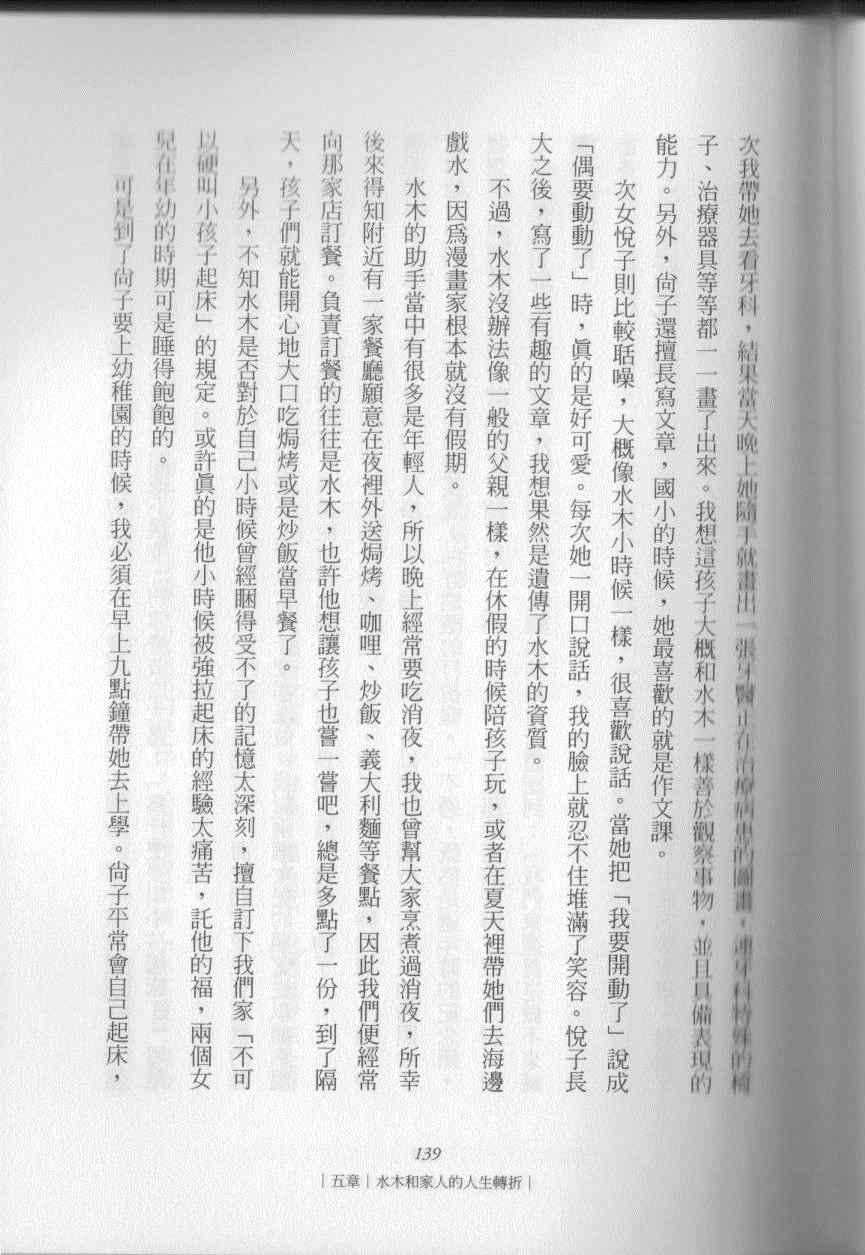 次我帶她去看牙科，結果當天晚上她隨手就畫出一張牙醫正在治療病患的圖畫，連牙科特殊的椅
子、治療器具等等都一一畫了出來。我想這孩子大概和水木一樣善於觀察事物，並且具備表現的
能力。另外，尙子還擅長寫文章，國小的時候，她最喜歡的就是作文課。
次女悅子則比較聒噪，大概像水木小時候一樣，很喜歡說話。當她把「我要開動了」說成
「偶要動動了」時，眞的是好可愛。每次她一開口說話，我的臉上就忍不住堆滿了笑容。悅子長
大之後，寫了一些有趣的文章，我想果然是遺傳了水木的資質。
不過，水木沒辦法像一般的父親一樣，在休假的時候陪孩子玩，或者在夏天裡帶她們去海邊
戲水，因爲漫畫家根本就沒有假期。
水木的助手當中有很多是年輕人，所以晚上經常要吃消夜，我也曾幫大家烹煮過消夜，所幸
後來得知附近有一家餐廳願意在夜裡外送焗烤、咖哩、炒飯、義大利麵等餐點，因此我們便經常
向那家店訂餐。負責訂餐的往往是水木，也許他想讓孩子也嘗一嘗吧，總是多點了一份，到了隔
天，孩子們就能開心地大口吃焗烤或是炒飯當早餐了。
另外，不知水木是否對於自己小時候曾經睏得受不了的記憶太深刻，擅自訂下我們家「不可
以硬叫小孩子起床」的規定。或許眞的是他小時候被強拉起床的經驗太痛苦，託他的福，兩個女
兒在年幼的時期可是睡得飽飽的。
可是到了尙子要上幼稚園的時候，我必須在早上九點鐘帶她去上學。尙子平常會自己起床，
139
｜五章｜水木和家人的人生轉折｜